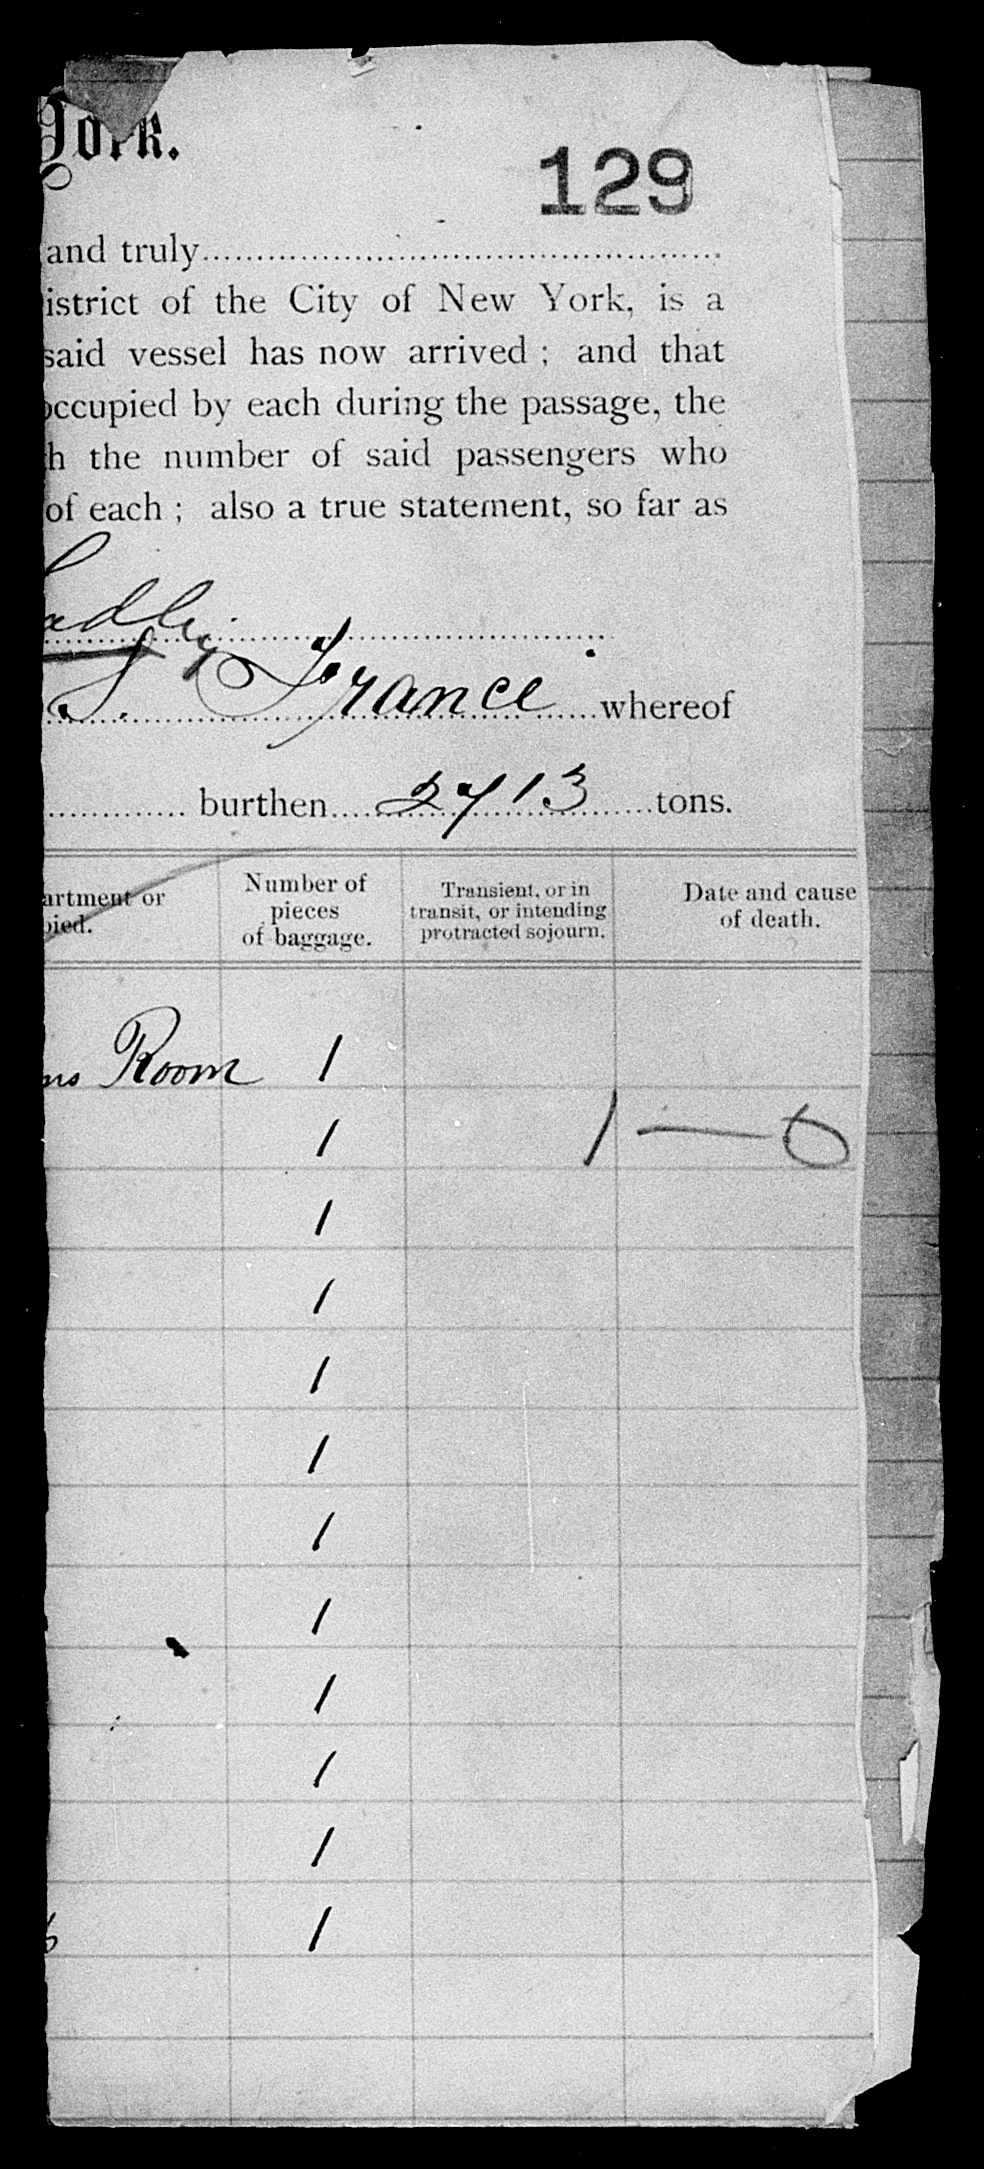 York.
129
and truly
istrict of the City of New York, is a
said vessel has now arrived ; and that
occupied by each during the passage, the
h the number of said passengers who
of each ; also a true statement, so far as
adley
S. France whereof
burthen 2713 tons.
artment or
pied.
Number of
pieces
of baggage.
Transient, or in
transit, or intending
protracted sojourn.
Date and cause
of death.
ns Room 1
1 1 — 0
1
1
1
1
1
1
1
1
1
1